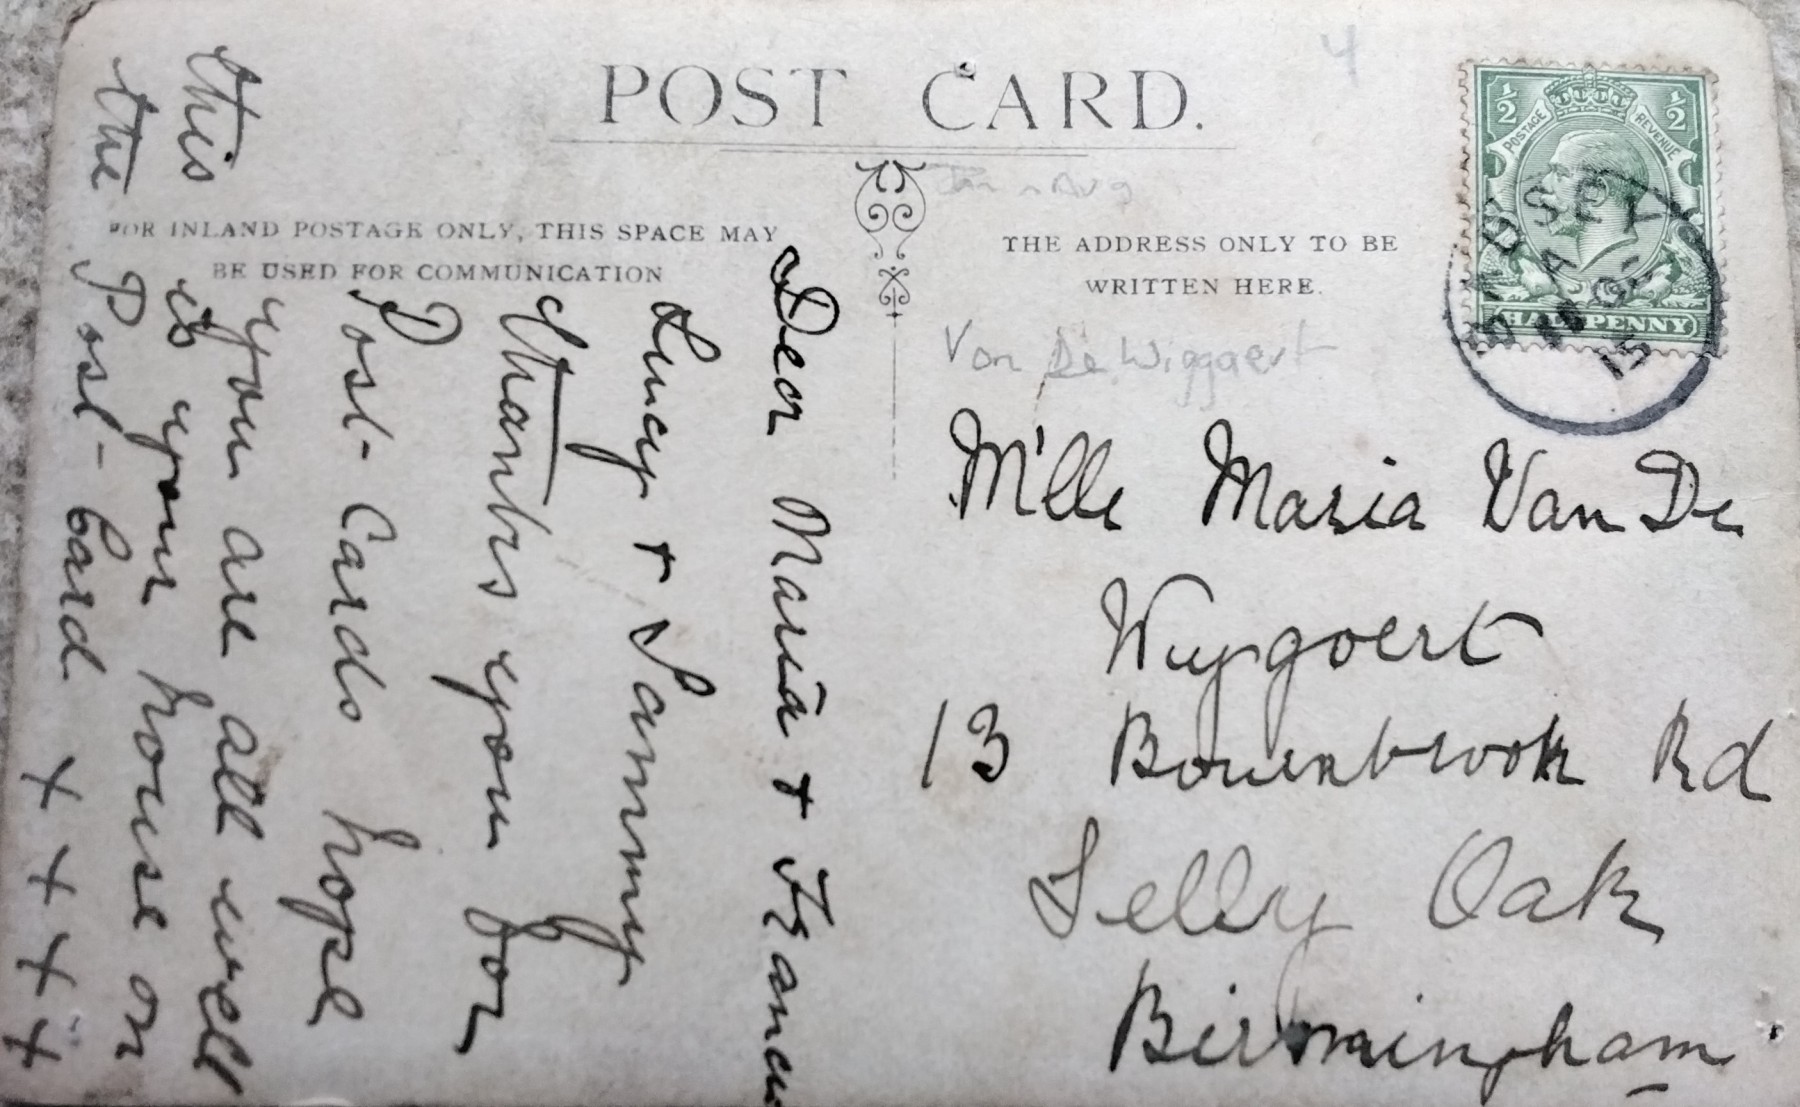 POST CARD.
4
Jan Aug
FOR INLAND POSTAGE ONLY, THIS SPACE MAY
BE USED FOR COMMUNICATION
THE ADDRESS ONLY TO BE
WRITTEN HERE.
½ ½
POSTAGE REVENUE
HALFPENNY
BADSEY
A
15
Dear Maria + Frances
Lucy + Sammy
Thanks you for
Post-Cards hope
you are all well
is your house on
the Post-Card x x x x
this
Van De Wiggaert
M'lle Maria Van De
Wuygoert
13 Bournbrook Rd
Selly Oak
Birmingham